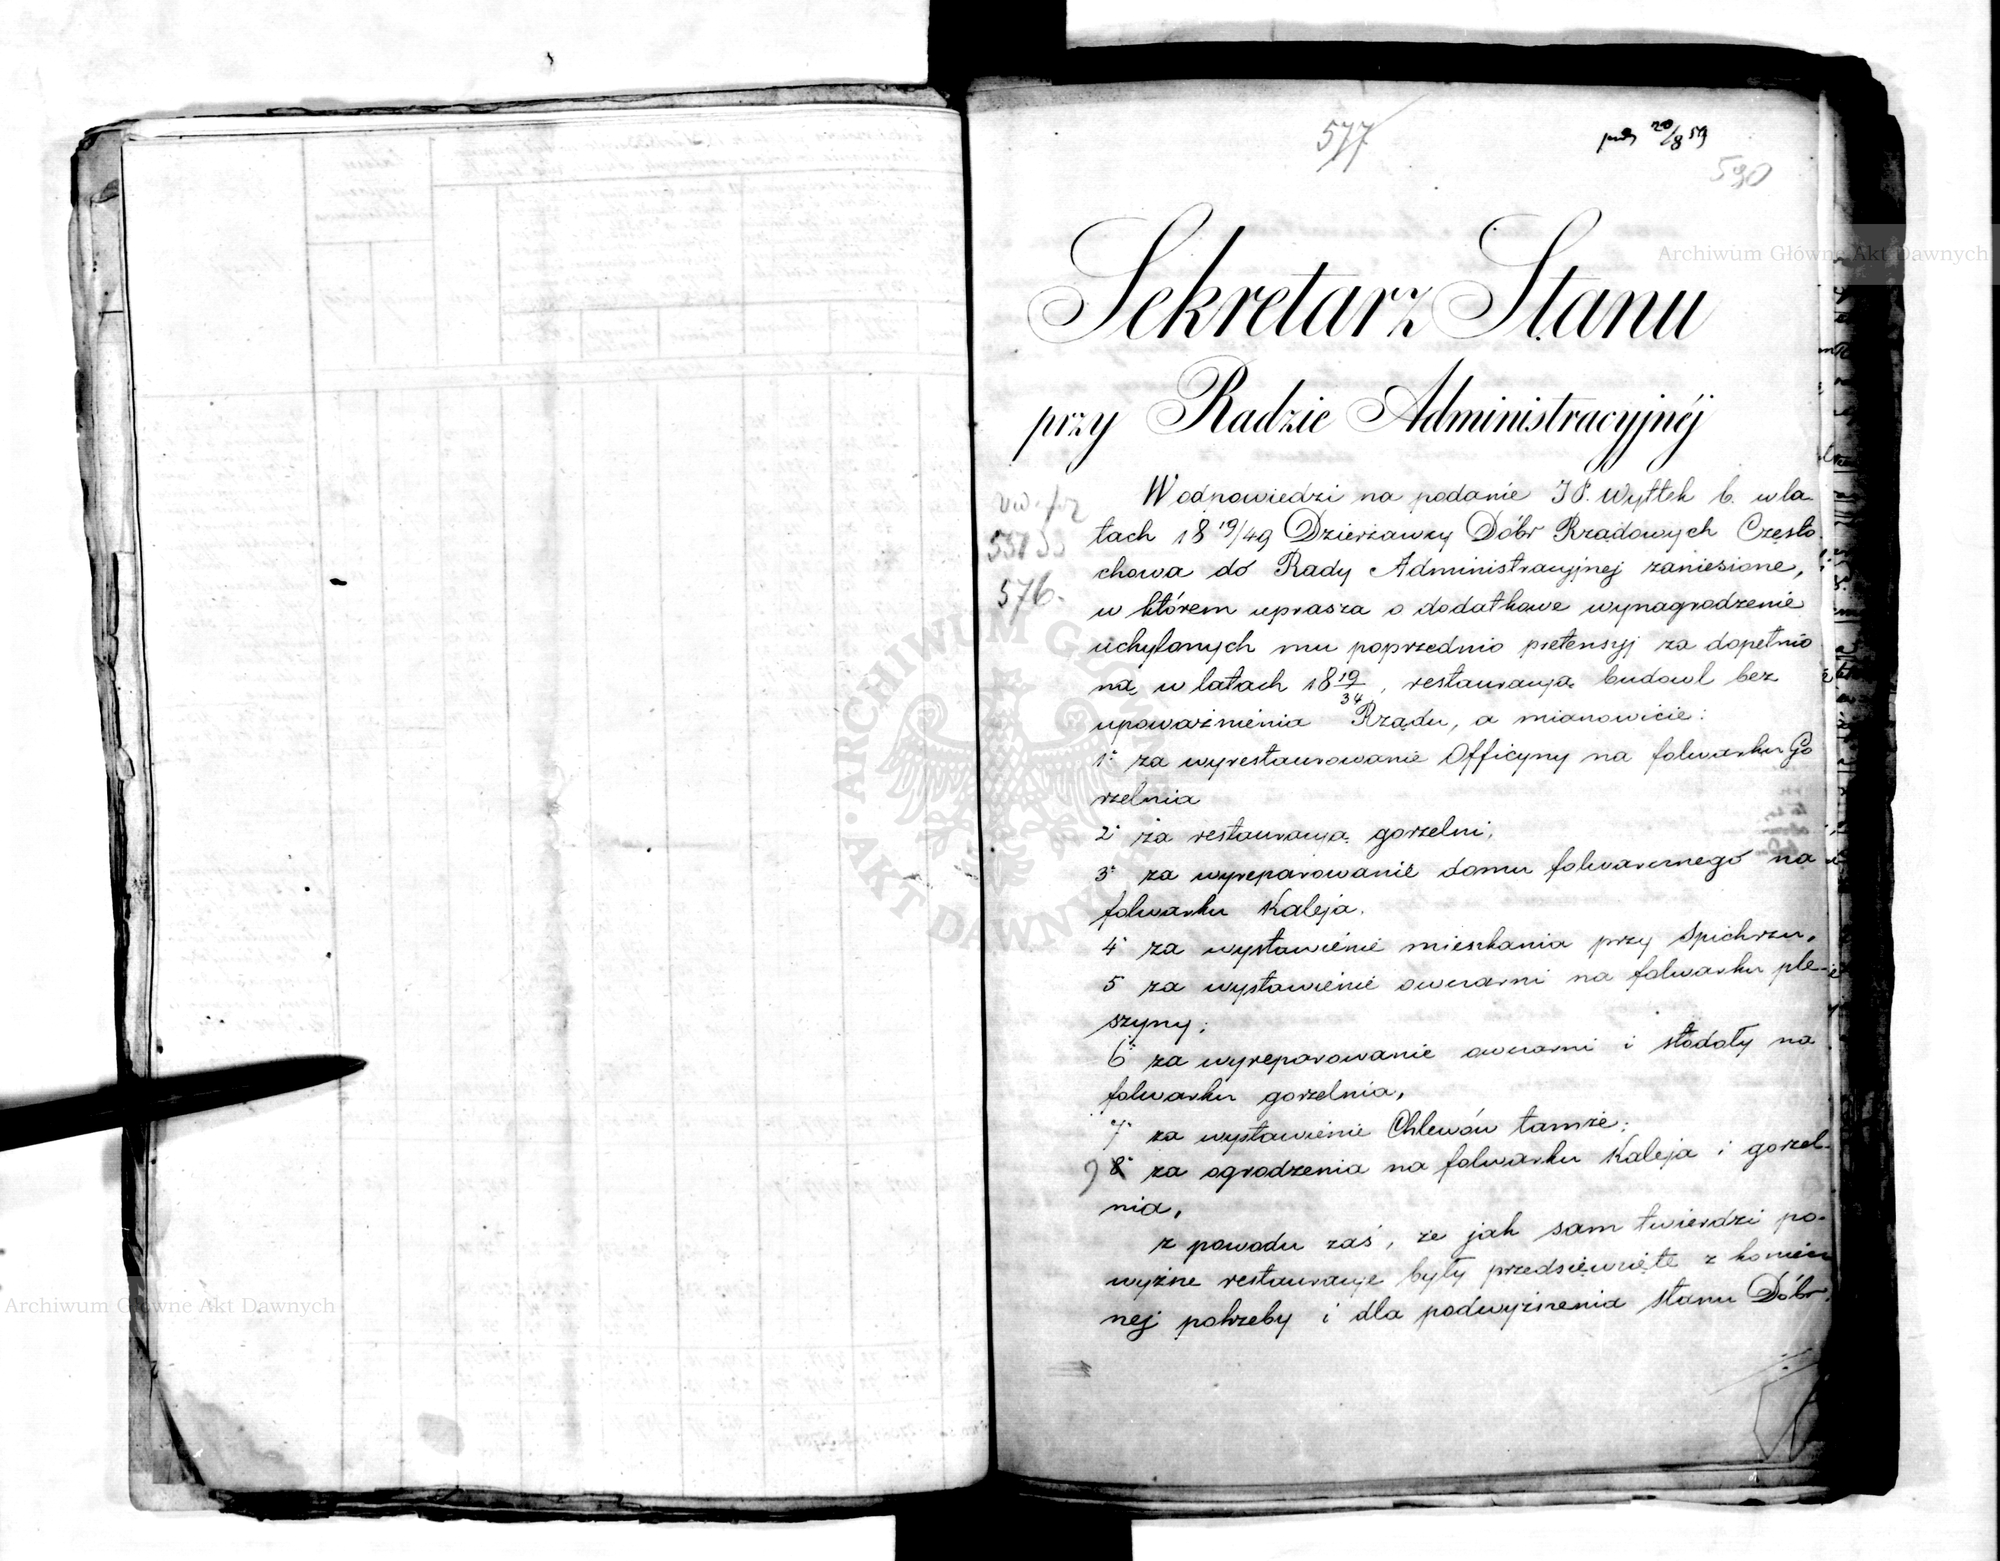 577
20/8 59
590
Sekretarz Stanu
przy Radzie Administracyjnéj
W odpowiedzi na podanie JP. Wyttek b. w la-
tach 18 19/49 Dzierżawcy Dóbr Rządowych Często
chowa do Rady Administracyjnej zaniesione,
w którem uprasza o dodatkowe wynagrodzenie
uchylonych mu poprzednio pretensyj za dopełnio
ną w latach 18 19/34, restauracyą budowl bez
upoważnienia Rządu, a mianowicie:
1° za wyrestaurowanie Officyny na folwarku Go
rzelnia
2° za restauracyą gorzelni,
3° za wyreparowanie domu folwarcznego na
folwarku Kaleja.
4° za wystawienie mieszkania przy Spichrzu,
5 za wystawienie owczarni na folwarku ple-
szyny;
6° za wyreparowanie owczarni i stodoły na
folwarku gorzelnia,
7° za wystawienie Chlewów tamże;
8° za ogrodzenia na folwarku Kaleja i gorzel-
nia,
z powodu zaś, że jak sam twierdzi po-
wyżne restauracye były przedsięwzięte z koniecz
nej potrzeby i dla podwyższenia stanu Dóbr,
576.
Archiwum Główne Akt Dawnych
ARCHIWUM GŁÓWNE AKT DAWNYCH
Archiwum Główne Akt Dawnych